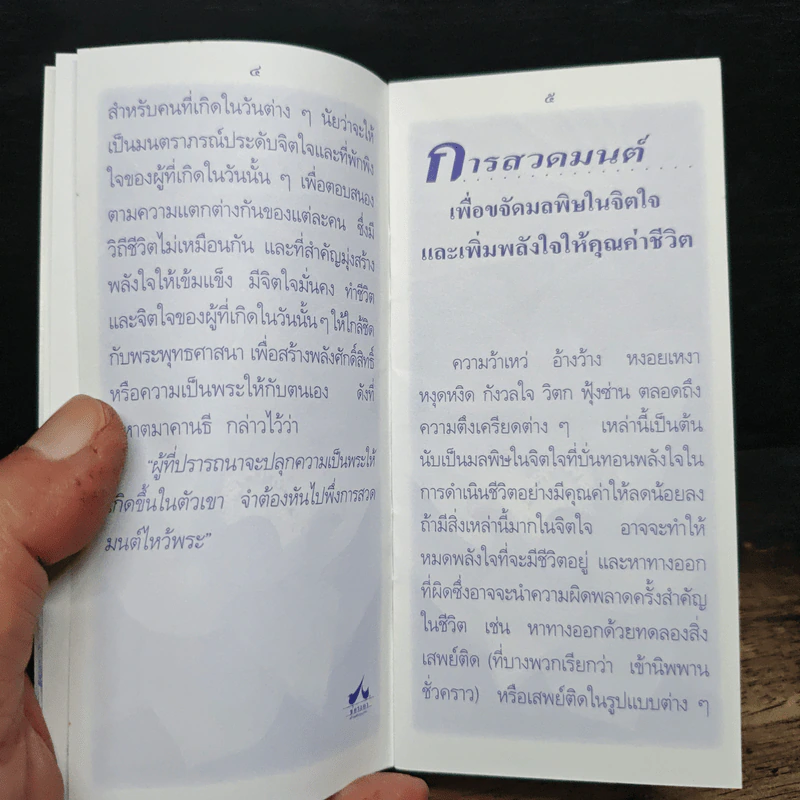 ๔
สำหรับคนที่เกิดในวันต่าง ๆ นัยว่าจะให้
เป็นมนตราภรณ์ประดับจิตใจและที่พักพิง
ใจของผู้ที่เกิดในวันนั้น ๆ เพื่อตอบสนอง
ตามความแตกต่างกันของแต่ละคน ซึ่งมี
วิถีชีวิตไม่เหมือนกัน และที่สำคัญมุ่งสร้าง
พลังใจให้เข้มแข็ง มีจิตใจมั่นคง ทำชีวิต
และจิตใจของผู้ที่เกิดในวันนั้นๆ ให้ใกล้ชิด
กับพระพุทธศาสนา เพื่อสร้างพลังศักดิ์สิทธิ์
หรือความเป็นพระให้กับตนเอง ดังที่
หาตมาคานธี กล่าวไว้ว่า
“ผู้ที่ปรารถนาจะปลุกความเป็นพระให้
เกิดขึ้นในตัวเขา จำต้องหันไปพึ่งการสวด
มนต์ไหว้พระ”
๕
การสวดมนต์
เพื่อขจัดมลพิษในจิตใจ
และเพิ่มพลังใจให้คุณค่าชีวิต
ความว้าเหว่ อ้างว้าง หงอยเหงา
หงุดหงิด กังวลใจ วิตก ฟุ้งซ่าน ตลอดถึง
ความตึงเครียดต่าง ๆ เหล่านี้เป็นต้น
นับเป็นมลพิษในจิตใจที่บั่นทอนพลังใจใน
การดำเนินชีวิตอย่างมีคุณค่าให้ลดน้อยลง
ถ้ามีสิ่งเหล่านี้มากในจิตใจ อาจจะทำให้
หมดพลังใจที่จะมีชีวิตอยู่ และหาทางออก
ที่ผิดซึ่งอาจจะนำความผิดพลาดครั้งสำคัญ
ในชีวิต เช่น หาทางออกด้วยทดลองสิ่ง
เสพย์ติด (ที่บางพวกเรียกว่า เข้านิพพาน
ชั่วคราว) หรือเสพย์ติดในรูปแบบต่าง ๆ